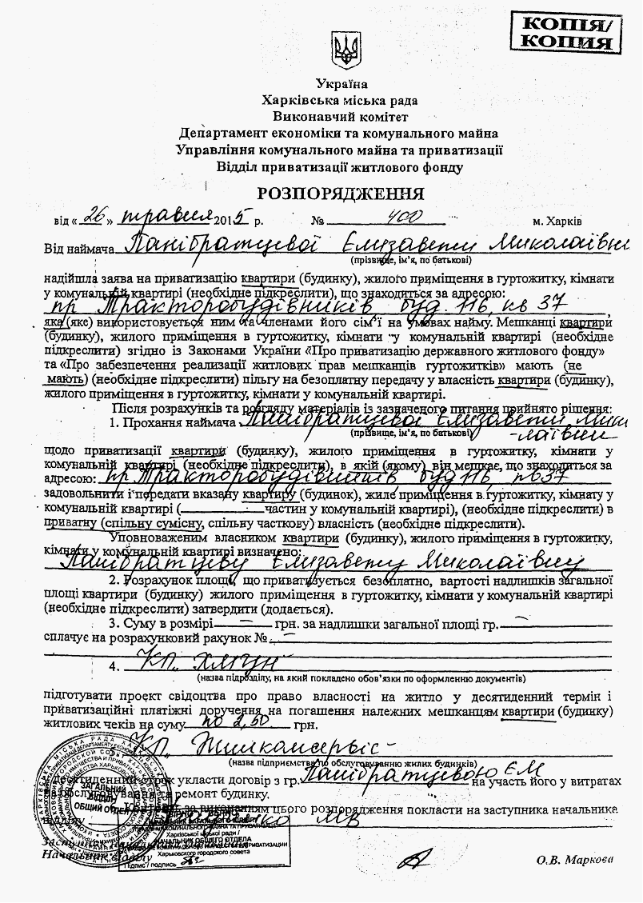 КОПІЯ/
КОПИЯ
Україна
Харківська міська рада
Виконавчий комітет
Департамент економіки та комунального майна
Управління комунального майна та приватизації
Відділ приватизації житлового фонду
РОЗПОРЯДЖЕННЯ
від «26» травня 2015 р. № 400 м. Харків
Від наймача Панібратцевої Єлизавети Миколаївни
(прізвище, ім’я, по батькові)
надійшла заява на приватизацію квартири (будинку), жилого приміщення в гуртожитку, кімнати
у комунальній квартирі (необхідне підкреслити), що знаходиться за адресою:
пр Тракторобудівників буд. 116, кв 37
яка (яке) використовується ним та членами його сім’ї на умовах найму. Мешканці квартири
(будинку), жилого приміщення в гуртожитку, кімнати у комунальній квартирі (необхідне
підкреслити) згідно із Законами України «Про приватизацію державного житлового фонду»
та «Про забезпечення реалізації житлових прав мешканців гуртожитків» мають (не
мають) (необхідне підкреслити) пільгу на безоплатну передачу у власність квартири (будинку),
жилого приміщення в гуртожитку, кімнати у комунальній квартирі.
Після розрахунків та розгляду матеріалів із зазначеного питання прийнято рішення:
1. Прохання наймача Панібратцевої Єлизавети Мико
(прізвище, ім’я, по батькові) -лаївни
щодо приватизації квартири (будинку), жилого приміщення в гуртожитку, кімнати у
комунальній квартирі (необхідне підкреслити), в якій (якому) він мешкає, що знаходиться за
адресою: пр Тракторобудівників буд 116 кв 37
задовольнити і передати вказану квартиру (будинок), жиле приміщення в гуртожитку, кімнату у
комунальній квартирі ( частин у комунальній квартирі), (необхідне підкреслити) в
приватну (спільну сумісну, спільну часткову) власність (необхідне підкреслити).
Уповноваженим власником квартири (будинку), жилого приміщення в гуртожитку,
кімнати у комунальній квартирі визначено:
Панібратцеву Єлизавету Миколаївну
2. Розрахунок площі, що приватизується безоплатно, вартості надлишків загальної
площі квартири (будинку) жилого приміщення в гуртожитку, кімнати у комунальній квартирі
(необхідне підкреслити) затвердити (додається).
3. Суму в розмірі — грн. за надлишки загальної площі гр. —
сплачує на розрахунковий рахунок № —
4. КП
(назва підрозділу, на який покладено обов’язки по оформленню документів)
підготувати проект свідоцтва про право власності на житло у десятиденний термін і
приватизаційні платіжні доручення на погашення належних мешканцям квартири (будинку)
житлових чеків на суму по 2,50 грн.
КП Жилкомсервіс
(назва підприємства по обслуговуванню жилих будинків)
у десятиденний строк укласти договір з гр. Панібратцевою ЄМ на участь його у витратах
на обслуговування та ремонт будинку.
Контроль за виконанням цього розпорядження покласти на заступника начальника
відділу МВ
Начальник відділу О.В. Маркова
ЗАГАЛЬНИЙ
ВІДДІЛ
ОБЩИЙ ОТДЕЛ
Харківської міської ради /
НАЧАЛЬНИК ОБЩЕГО ОТДЕЛА
Харьковского городского совета
Підпис / подпись